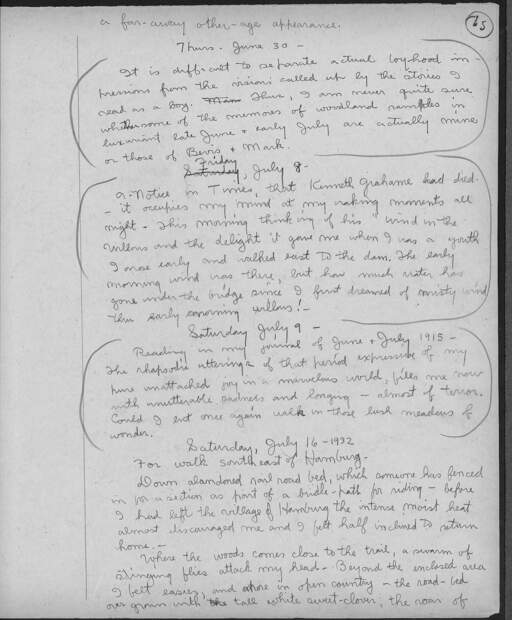 75
a far-away other-age appearance.
Thurs. June 30 -
It is difficult to separate actual boyhood im-
pressions from the visions called up by the stories I
read as a boy. Thus, I am never quite sure
whether some of the memories of woodland rambles in
luxuriant late June & early July are actually mine
or those of Bevis & Mark.
Friday
Saturday, July 8-
A Notice in Times, that Kenneth Grahame had died.
- it occupies my mind at my waking moments all
night - This morning thinking of his "Wind in the
Willows and the delight it gave me when I was a youth
I arose early and walked east to the dam. The early
morning wind was there, but how much water has
gone under the bridge since I first dreamed of misty wind
thru early morning willows! -
Saturday July 9 -
Reading in my journal of June & July 1915 -
The rhapsodic utterings of that period expressive of my
pure unattached joy in a marvelous world, fills me now
with unutterable sadness and longing - almost of terror.
Could I but once again walk in those lush meadows of
wonder.
Saturday, July 16 - 1932
For walk southeast of Hamburg -
Down abandoned rail road bed, which someone has fenced
in for a section as part of a bridle-path for riding - before
I had left the village of Hamburg the intense moist heat
almost discouraged me and I felt half inclined to return
home. -
Where the woods comes close to the trail, a swarm of
stinging flies attack my head - Beyond the enclosed area
I felt easier, and more in open country - the road-bed
over grown with the tall white sweet-clover, the roar of